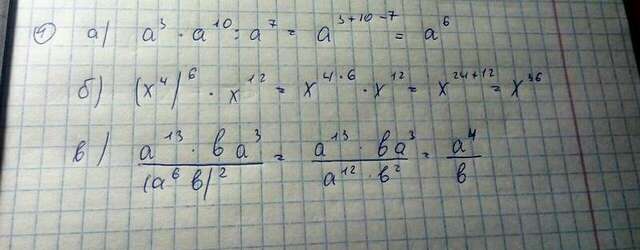 ① а) a³ · a¹⁰ : a⁷ = a³⁺¹⁰⁻⁷ = a⁶
б) (x⁴)⁶ · x¹² = x⁴·⁶ · x¹² = x²⁴⁺¹² = x³⁶
в) a¹³ · в a³ / (a⁶ в)² = a¹³ · в a³ / a¹² · в² = a⁴ / в